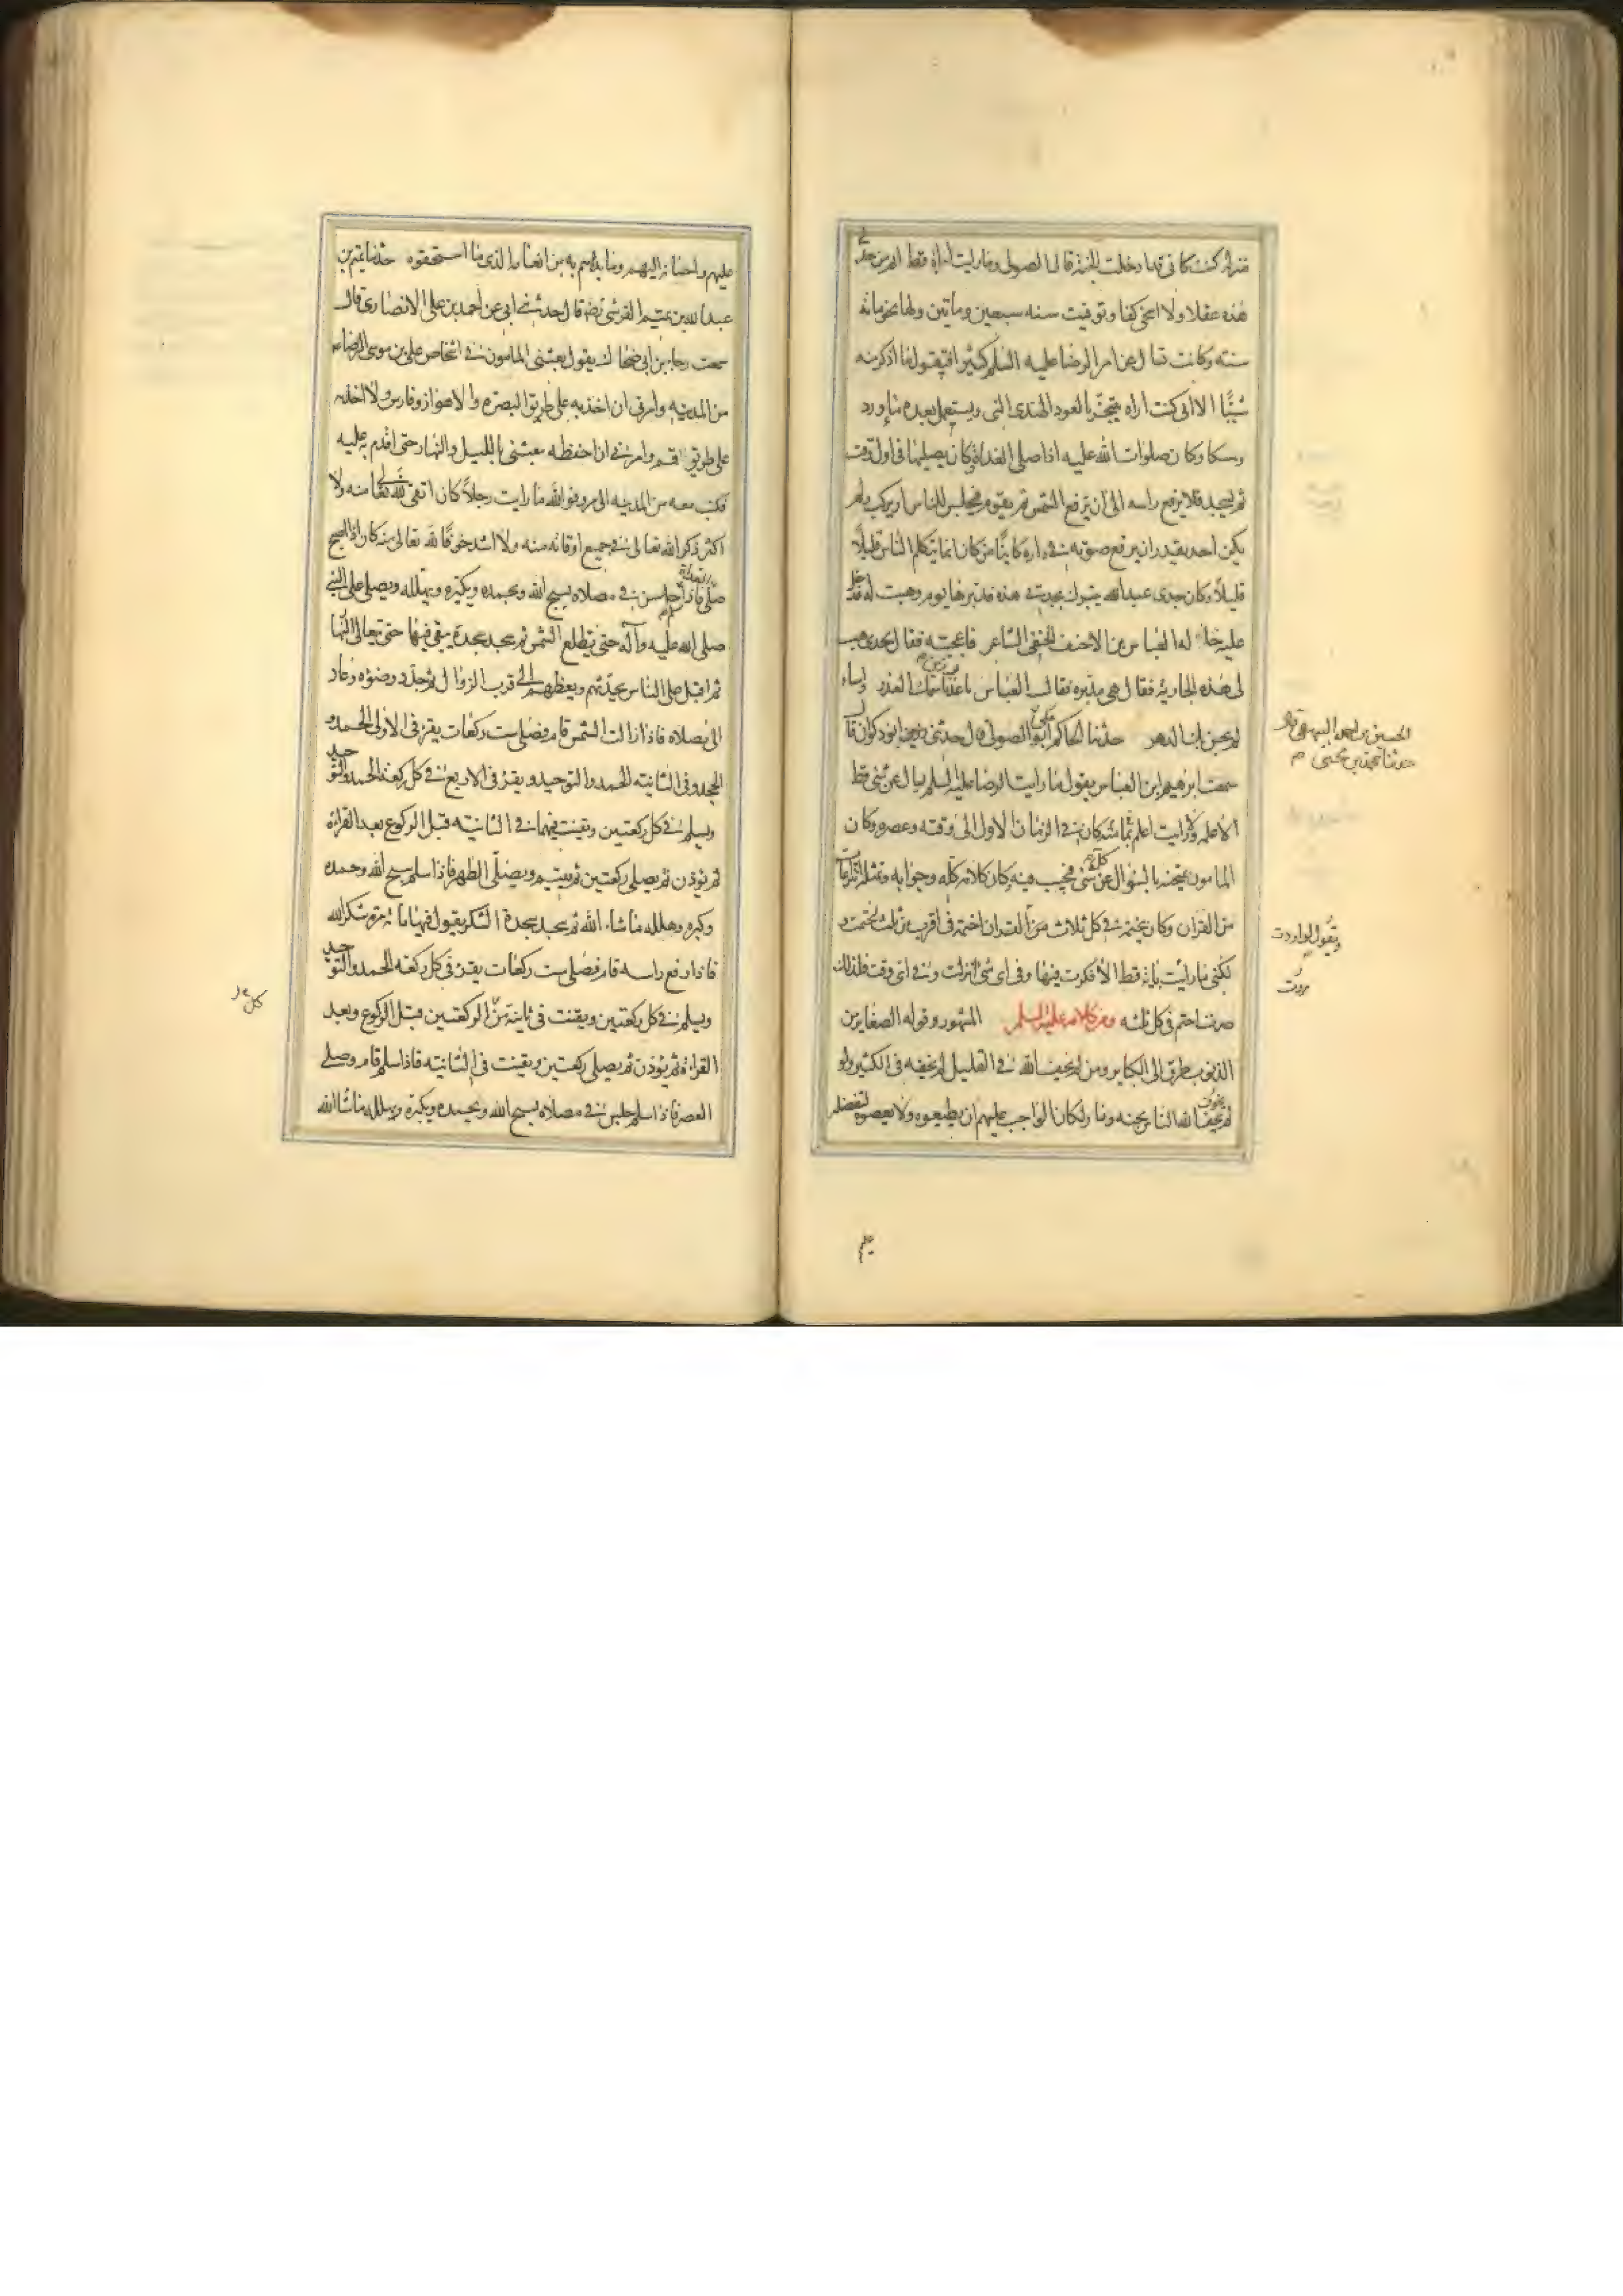 منزله كنت كانى قد ادخلت الجنة قال الصولى وما رايت امراة قط اتم من جدتى
هذه عقلا ولا اسخى كفا وتوفيت سنه سبعين وماتين ولها نحو مائة
سنه وكانت تسال عن امر الرضا عليه السلم كثيرا فتقول ما اذكر منه
شيئا الا انى كنت اراه يتبخر بالعود الهندى النى ويستعمل بعده ماورد
ومسكا وكان صلوات الله عليه اذا صلى الغداة وكان يصليها فى اول وقت
ثم يسجد فلا يرفع راسه الى ان يرفع الشمس ثم يقوم فيجلس للناس او يركب ولم
يكن احد يقدر ان يرفع صوته فى داره كاينا من كان انما يتكلم الناس قليلا
قليلا وكان جدى عبد الله يتبرك بجدتى هذه فدبرها يوم وهبت له فدخل
عليه خاله العباس بن الاحنف الحنفى الشاعر فاعجبته فقال لجدى هب
لى هذه الجارية فقال هى مدبره فقال العباس يا عذر زين باسمك العذر واساء
لم يحسن بك الدهر حدثنا الحاكم ابو على الصولى قال حدثنى ابو ذكوان قال
سمعت ابرهيم ابن العباس يقول ما رايت الرضا عليه السلم يسال عن شى قط
الا علم ولا رايت اعلم منه بما كان فى الزمان الاول الى وقته وعصره وكان
المامون يمتحنه بالسؤال عن كل شى فيجيب فيه وكان كلامه كله وجوابه وتمثله انتزاعات
من القران وكان يختمه فى كل ثلاث من القران اختمه فى اقرب من ثلث لختمت و
لكنى ما رايت باية قط الا فكرت فيها وفى اى شى انزلت وفى اى وقت فلذلك
صرت اختم فى كل ثلثه ومن كلامه عليه السلم المشهور وقوله الصغاير من
الذنوب طرق الى الكباير ومن لم يخف الله فى القليل لم يخفه فى الكثير ولو
لم يخوف الله الناس بجنه ونار لكان الواجب عليهم ان يطيعوه ولا يعصوه لتفضله
الحسين بن احمد البيهقى قال
حدثنا محمد بن يحيى م
ويقول لو اردت
عليهم واحسانه اليهم وما بداهم به من انعامه الذى ما استحقوه حدثنا تميم بن
عبد الله بن تميم القرشى رضه قال حدثنى ابى عن احمد بن على الانصارى قال
سمعت رجا بن ابى ضحاك يقول بعثنى المامون فى اشخاص على بن موسى الرضا ع
من المدينه وامرنى ان اخذ به على طريق البصره والاهواز وفارس ولا اخذ به
على طريق قم وامرنى ان احفظه بنفسى بالليل والنهار حتى اقدم به عليه
فكنت معه من المدينه الى مرو فوالله ما رايت رجلا كان اتقى لله تعالى منه ولا
اكثر ذكر الله تعالى فى جميع اوقاته منه ولا اشد خوفا لله تعالى منه كان اذا اصبح
صلى الغداة فاذا سلم جلس فى مصلاه يسبح الله ويحمده ويكبره ويهلله ويصلى على النبى
صلى الله عليه وآله حتى تطلع الشمس ثم يسجد سجدة يبقى فيها حتى تعالى النها
ثم اقبل على الناس يحدثهم ويعظهم الى قرب الزوال ثم جدد وضوئه وعاد
الى مصلاه فاذا زالت الشمس قام فصلى ست ركعات يقرء فى الاولى الحمد و
الجحد وفى الثانيه الحمد والتوحيد ويقرء فى الاربع فى كل ركعة الحمد والتوحيد
ويسلم فى كل ركعتين ويقنت فيهما فى الثانيه قبل الركوع بعد القراة
ثم يوذن ثم يصلى ركعتين ثم يقيم ويصلى الظهر فاذا سلم سبح الله وحمده
وكبره وهلله ما شاء الله ثم يسجد سجدة الشكر يقول فيها مائه مره شكرا لله
فاذا رفع راسه قام فصلى ست ركعات يقرء فى كل ركعة الحمد والتوحيد
ويسلم فى كل ركعتين ويقنت فى ثانية من الركعتين قبل الركوع وبعد
القراة ثم يوذن ثم يصلى ركعتين ويقنت فى الثانيه فاذا سلم قام وصلى
العصر فاذا سلم جلس فى مصلاه يسبح الله ويحمده ويكبره ويهلله ما شا الله
كل